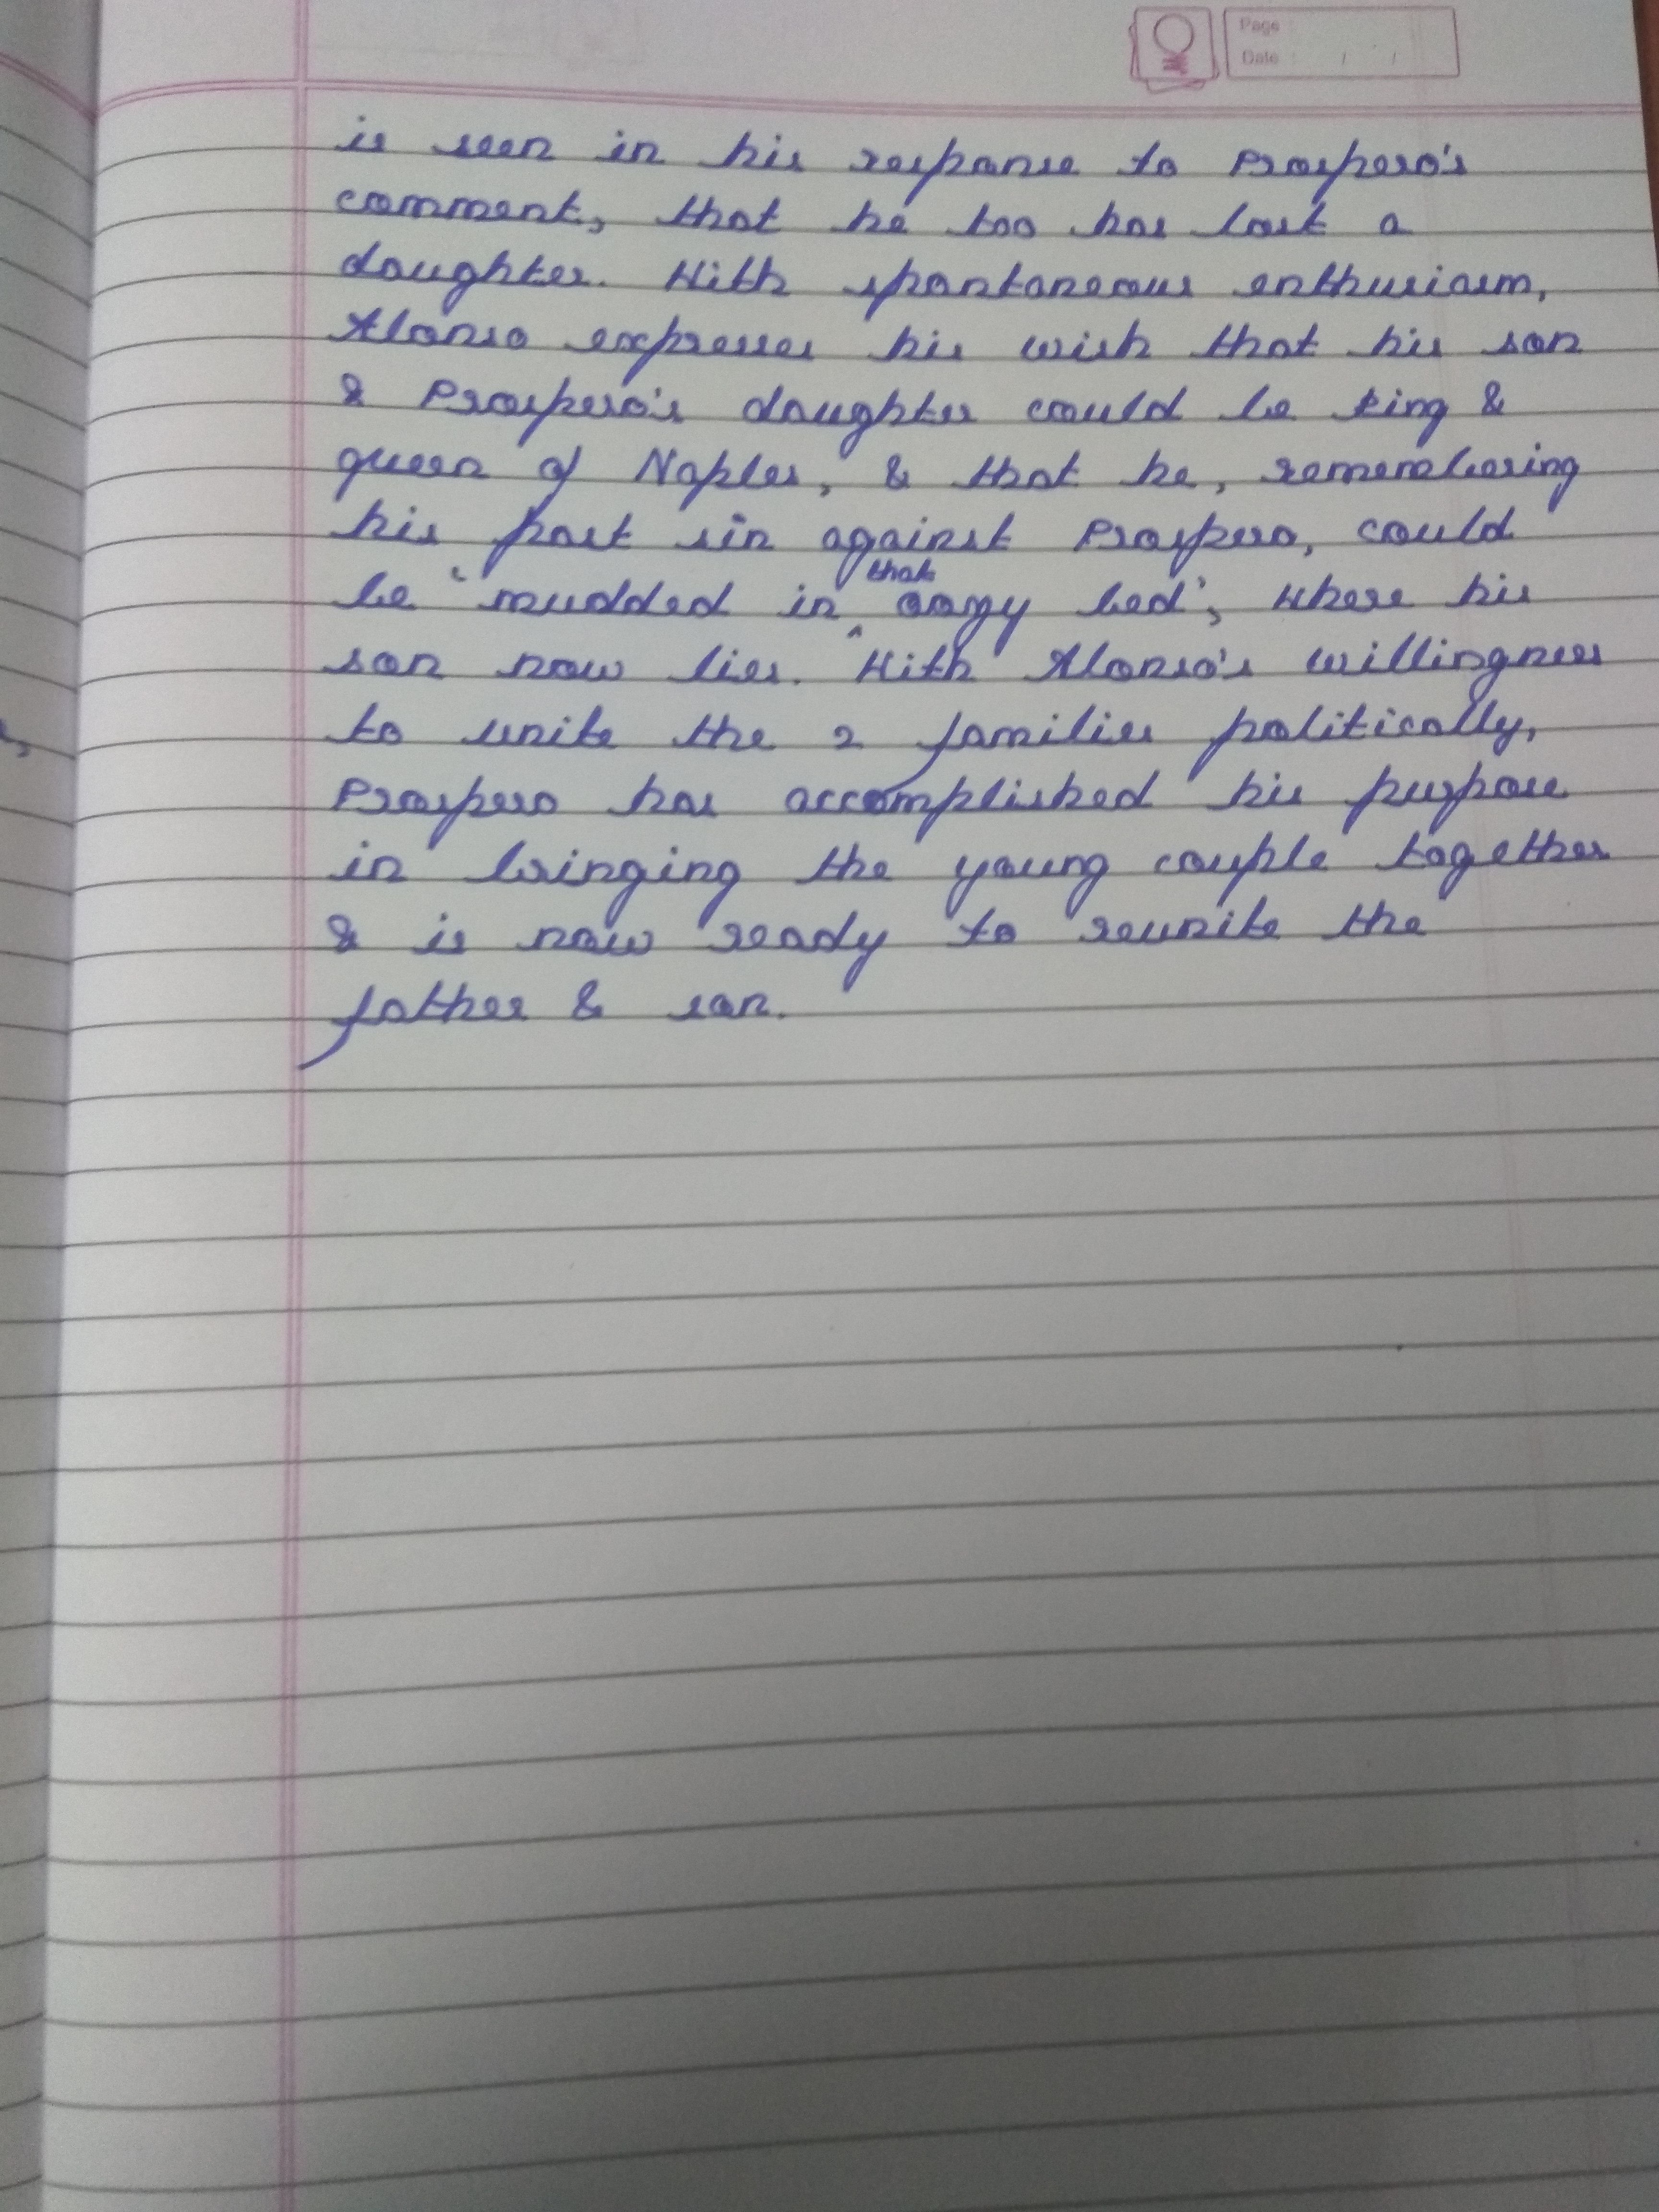 Page :
Date : / /
is seen in his response to Prospero's
comment, that he too has lost a
daughter. With spontaneous enthusiasm,
Alonso expresses his wish that his son
& Prospero's daughter could be king &
queen of Naples, & that he, remembering
his past sin against Prospero, could
that
be 'mudded in ^ oozy bed', where his
son now lies. With Alonso's willingness
to unite the 2 families politically,
Prospero has accomplished his purpose
in bringing the young couple together
& is now ready to reunite the
father & son.